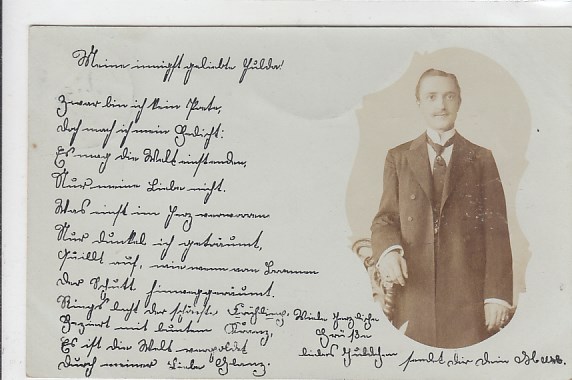 Meine innigst geliebte Hulda!
Zwar bin ich kein Poete,
Doch mach ich mein Gedicht:
Es mag die Welt einstenden,
Nur meine Liebe nicht.
Was einst im Herz verworren
Nur dunkel ich geträumt,
Quillt auf, wie wenn vom Bronnen
Der Schutt hinweggeräumt.
Rings lacht der schönste Frühling,
Geziert mit buntem Kranz,
Es ist die Welt vergoldet
Durch meiner Liebe Glanz.
Viele herzliche
Grüße
liebes Huldchen
sendt dir dein